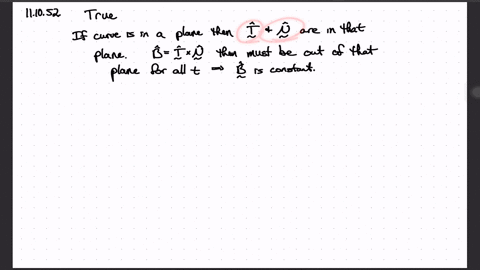 11.10.52 True
If curve is in a plane then T̂ + N̂ are in that
plane. B̂ = T̂ × N̂ then must be out of that
plane for all t ⇒ B̂ is constant.